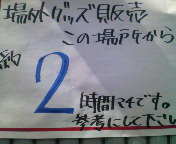 場外グッズ販売
この場所から
約
2
時間マチです。
参考にして下さい